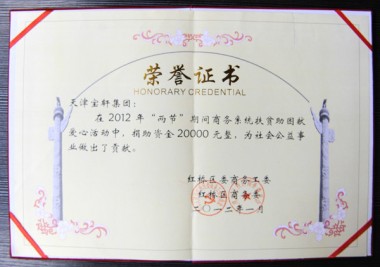 荣誉证书
HONORARY CREDENTIAL
天津宝轩集团：
在 2012 年“两节”期间商务系统扶贫助困献
爱心活动中，捐助资金 20000 元整，为社会公益事
业做出了贡献。
红桥区委商务工委
红桥区商务委
二〇一二年一月